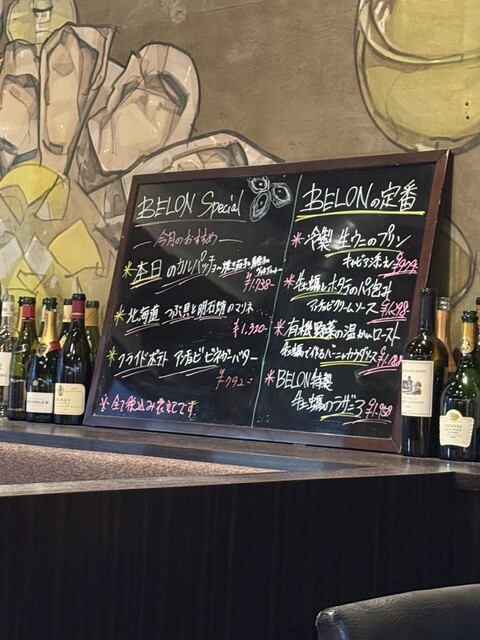 BELON Special
今月のおすすめ
＊本日のカルパッチョ
¥1,738-
＊北海道 つぶ貝と明石蛸のマリネ
¥1,320-
＊フライドポテト アンチョビ・ビネガーバター
¥792-
※全て税込み表記です
BELONの定番
＊冷製 生ウニのプリン
キャビア添え
＊牡蠣とホタテのパイ包み
アンチョビクリームソース
＊有機野菜の温かいロースト
牡蠣で作るバーニャカウダソース
＊BELON特製
牡蠣のラザニア